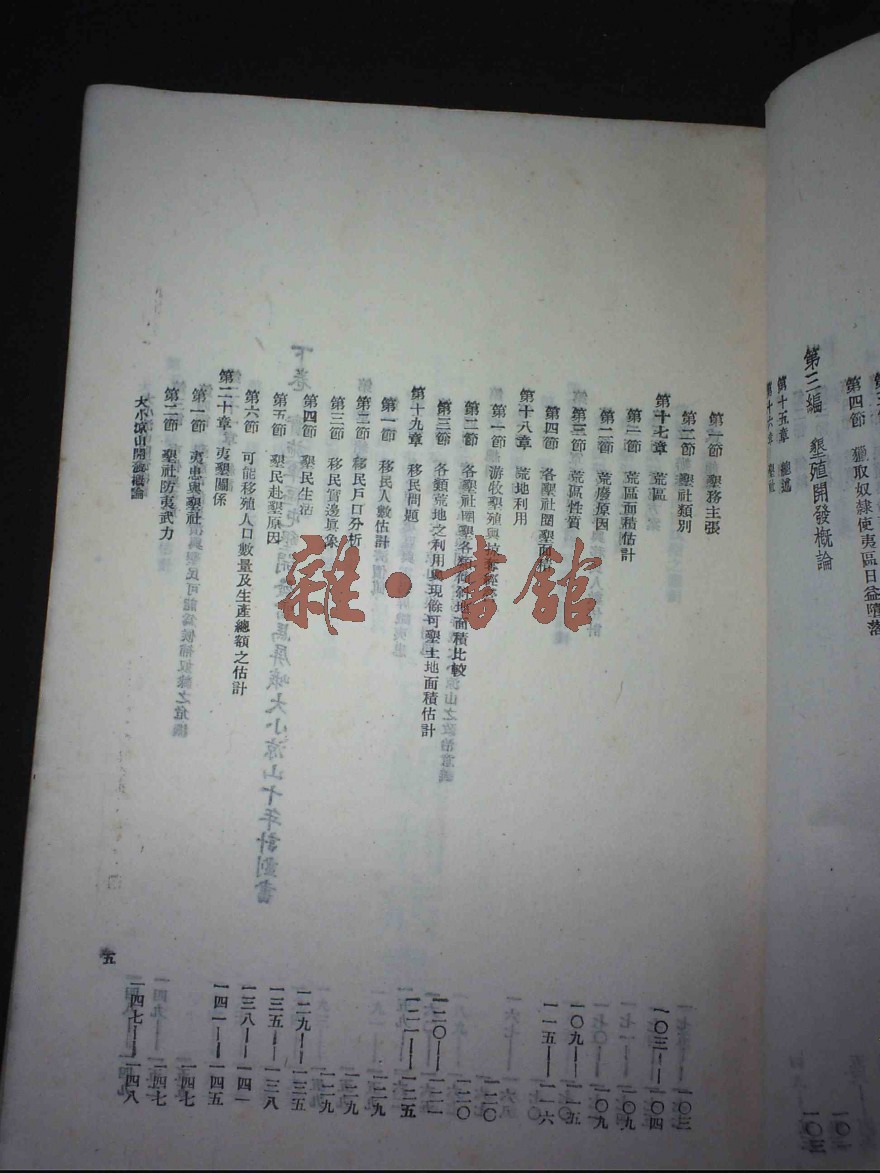 第四節 擄取奴隸使夷區日益墮落
第三編 墾殖開發概論
第十五章 總述
第十六章 墾社
第一節 墾務主張 一〇三
第二節 墾社類別 一〇三——一〇四
第十七章 荒區 一〇九
第一節 荒區面積估計 一〇九
第二節 荒廢原因 一〇九——一一五
第三節 荒區性質 一一五——一一六
第四節 各墾社圈墾面積
第十八章 荒地利用
第一節 游牧墾殖與掠奪經濟 一二〇
第二節 各墾社圈墾各類傾斜地面積比較 一二〇
第三節 各類荒地之利用與現餘可墾土地面積估計 一二〇——一二一
第十九章 移民問題 一二一——一二五
第一節 移民人數估計 一二九
第二節 移民戶口分析 一二九
第三節 移民實邊真象 一二九
第四節 墾民生活 一二九——一三五
第五節 墾民赴墾原因 一三五——一三八
第六節 可能移殖人口數量及生產總額之估計 一三八——一四一
第二十章 夷墾關係 一四一——一四五
第一節 夷患與墾社 一四七
第二節 墾社防夷武力 一四七——一四八
大小涼山開發概論
五
雜·書館